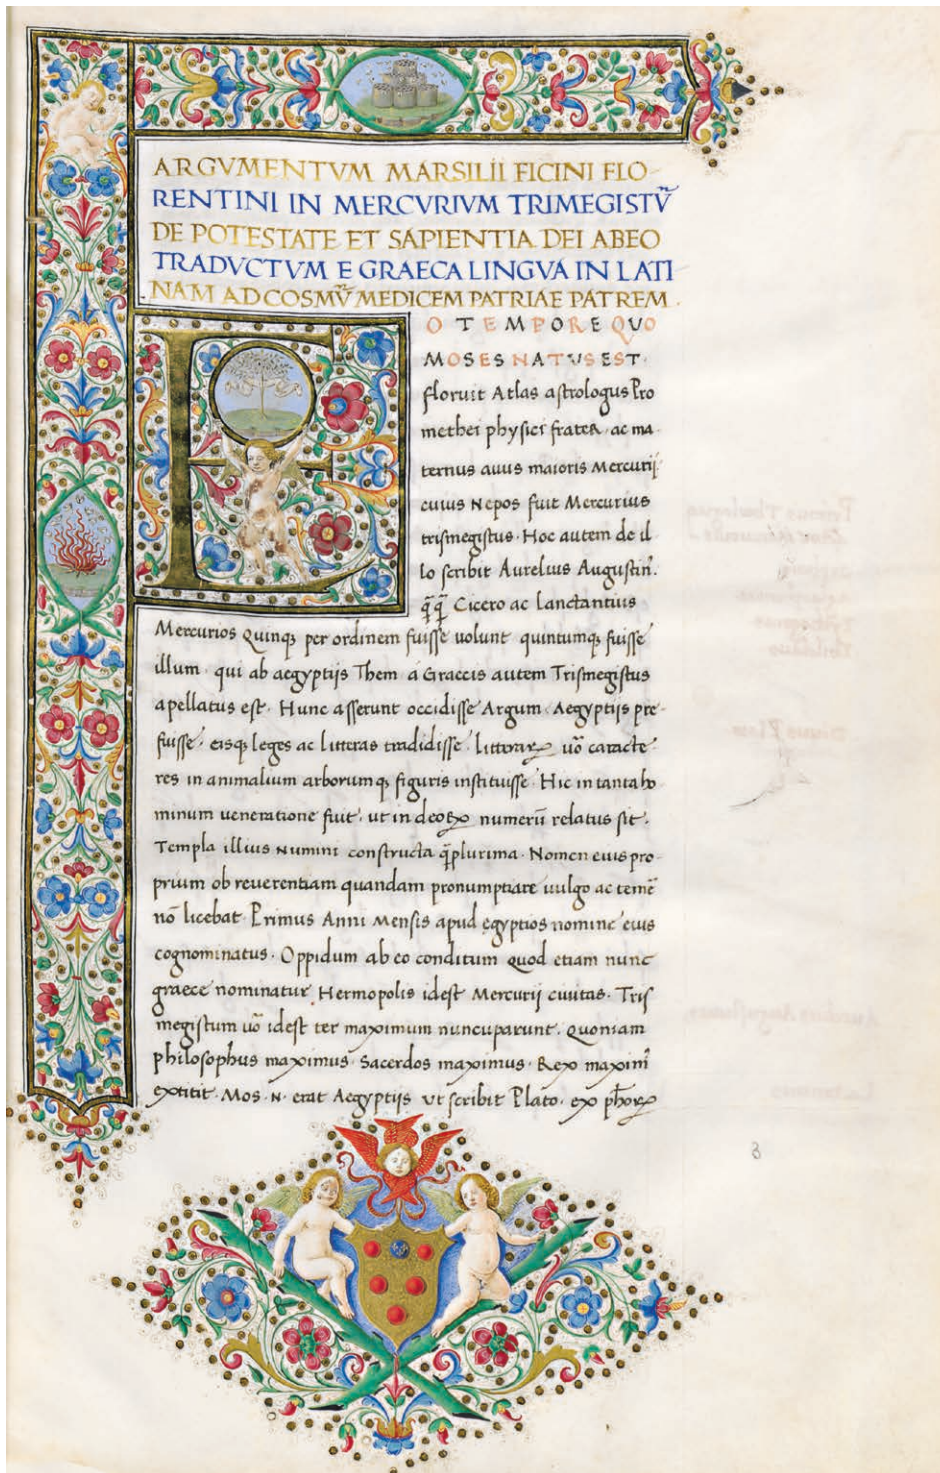 ARGVMENTVM MARSILII FICINI FLO-
RENTINI IN MERCVRIVM TRIMEGISTV̄
DE POTESTATE ET SAPIENTIA DEI AB EO
TRADVCTVM E GRAECA LINGVA IN LATI
NAM AD COSMV̄ MEDICEM PATRIAE PATREM.
EO TEMPORE QUO
MOSES NATUS EST.
floruit Atlas astrologus Pro
methei physici frater. ac ma
ternus auus maioris Mercurij
cuius Nepos fuit Mercurius
trismegistus. Hoc autem de il-
lo scribit Aurelius Augustin.
q̄q̄ Cicero ac lanctantius
Mercurios Quinq; per ordinem fuisse uolunt quintumq; fuisse
illum. qui ab aegyptijs Them. a Graecis autem Trismegistus
apellatus est. Hunc asserunt occidisse Argum. Aegyptijs pre-
fuisse. eisq; leges ac litteras tradidisse. litterarꝝ uō caracte-
res in animalium arborumq; figuris instituisse. Hic in tanta ho
minum ueneratione fuit. ut in deorꝝ numerū relatus sit.
Templa illius Numini constructa q̄plurima. Nomen eius pro-
prium ob reuerentiam quandam pronumptiare uulgo ac temē
nō licebat. Primus Anni Mensis apud egyptios nomine eius
cognominatus. Oppidum ab eo conditum quod etiam nunc
graece nominatur Hermopolis idest Mercurij ciuitas. Tris
megistum uō idest ter maximum nuncuparunt. Quoniam
philosophus maximus. Sacerdos maximus. Rex maxim̄
extitit. Mos .N. erat Aegyptijs ut scribit Plato. ex ph̄orꝝ